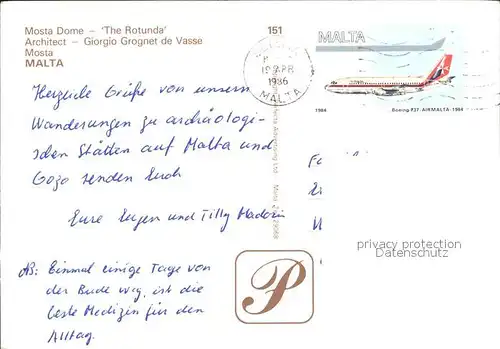 Mosta Dome – 'The Rotunda'
Architect – Giorgio Grognet de Vasse
Mosta
MALTA
151
MALTA
19 APR
1986
MALTA
1984 Boeing 737 AIRMALTA 1984
Herzliche Grüße von unsern
Wanderungen zu archäologi-
schen Stätten auf Malta und
Gozo senden Euch
Eure Eugen und Tilly
AB: Einmal einige Tage von
der Bude weg, ist die
beste Medizin für den
Alltag.
P
privacy protection
Datenschutz